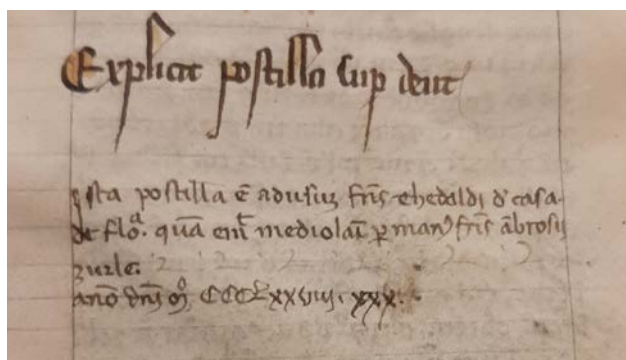 Explicit postilla sup deut
Ista postilla ē ad usuȝ fr̄is thedaldi d' casa.
de floᵃ. quā emᵗ mediolaī ꝑ manꝰ fr̄is ābrosij
zurle.
año dn̄i mͦ. CCCLxxviiij. xxx.